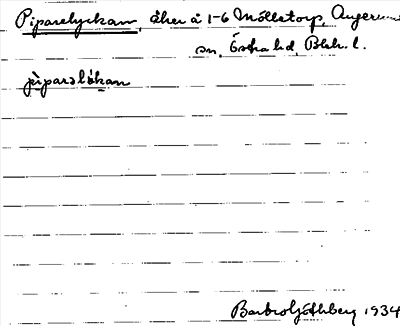 Piparelyckan, åker å 1-6 Mölletorp, Augerums
sn, Östra hd, Blek. l.
pìparslỳkan
Barbro Göthberg 1934